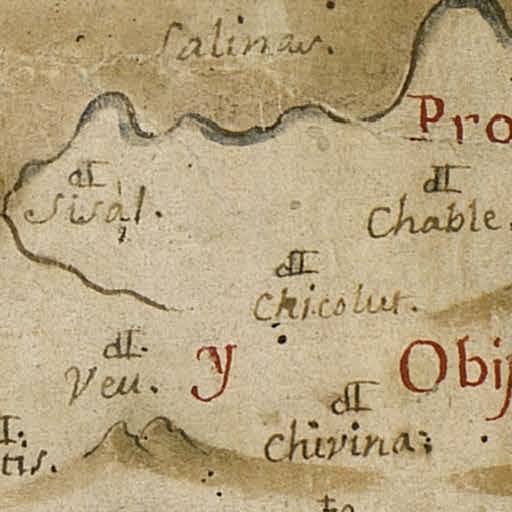 Salinas.
Pro
Sisal.
Chable.
Chicolut.
Veu. y Obis
Chivina:
tis.
to